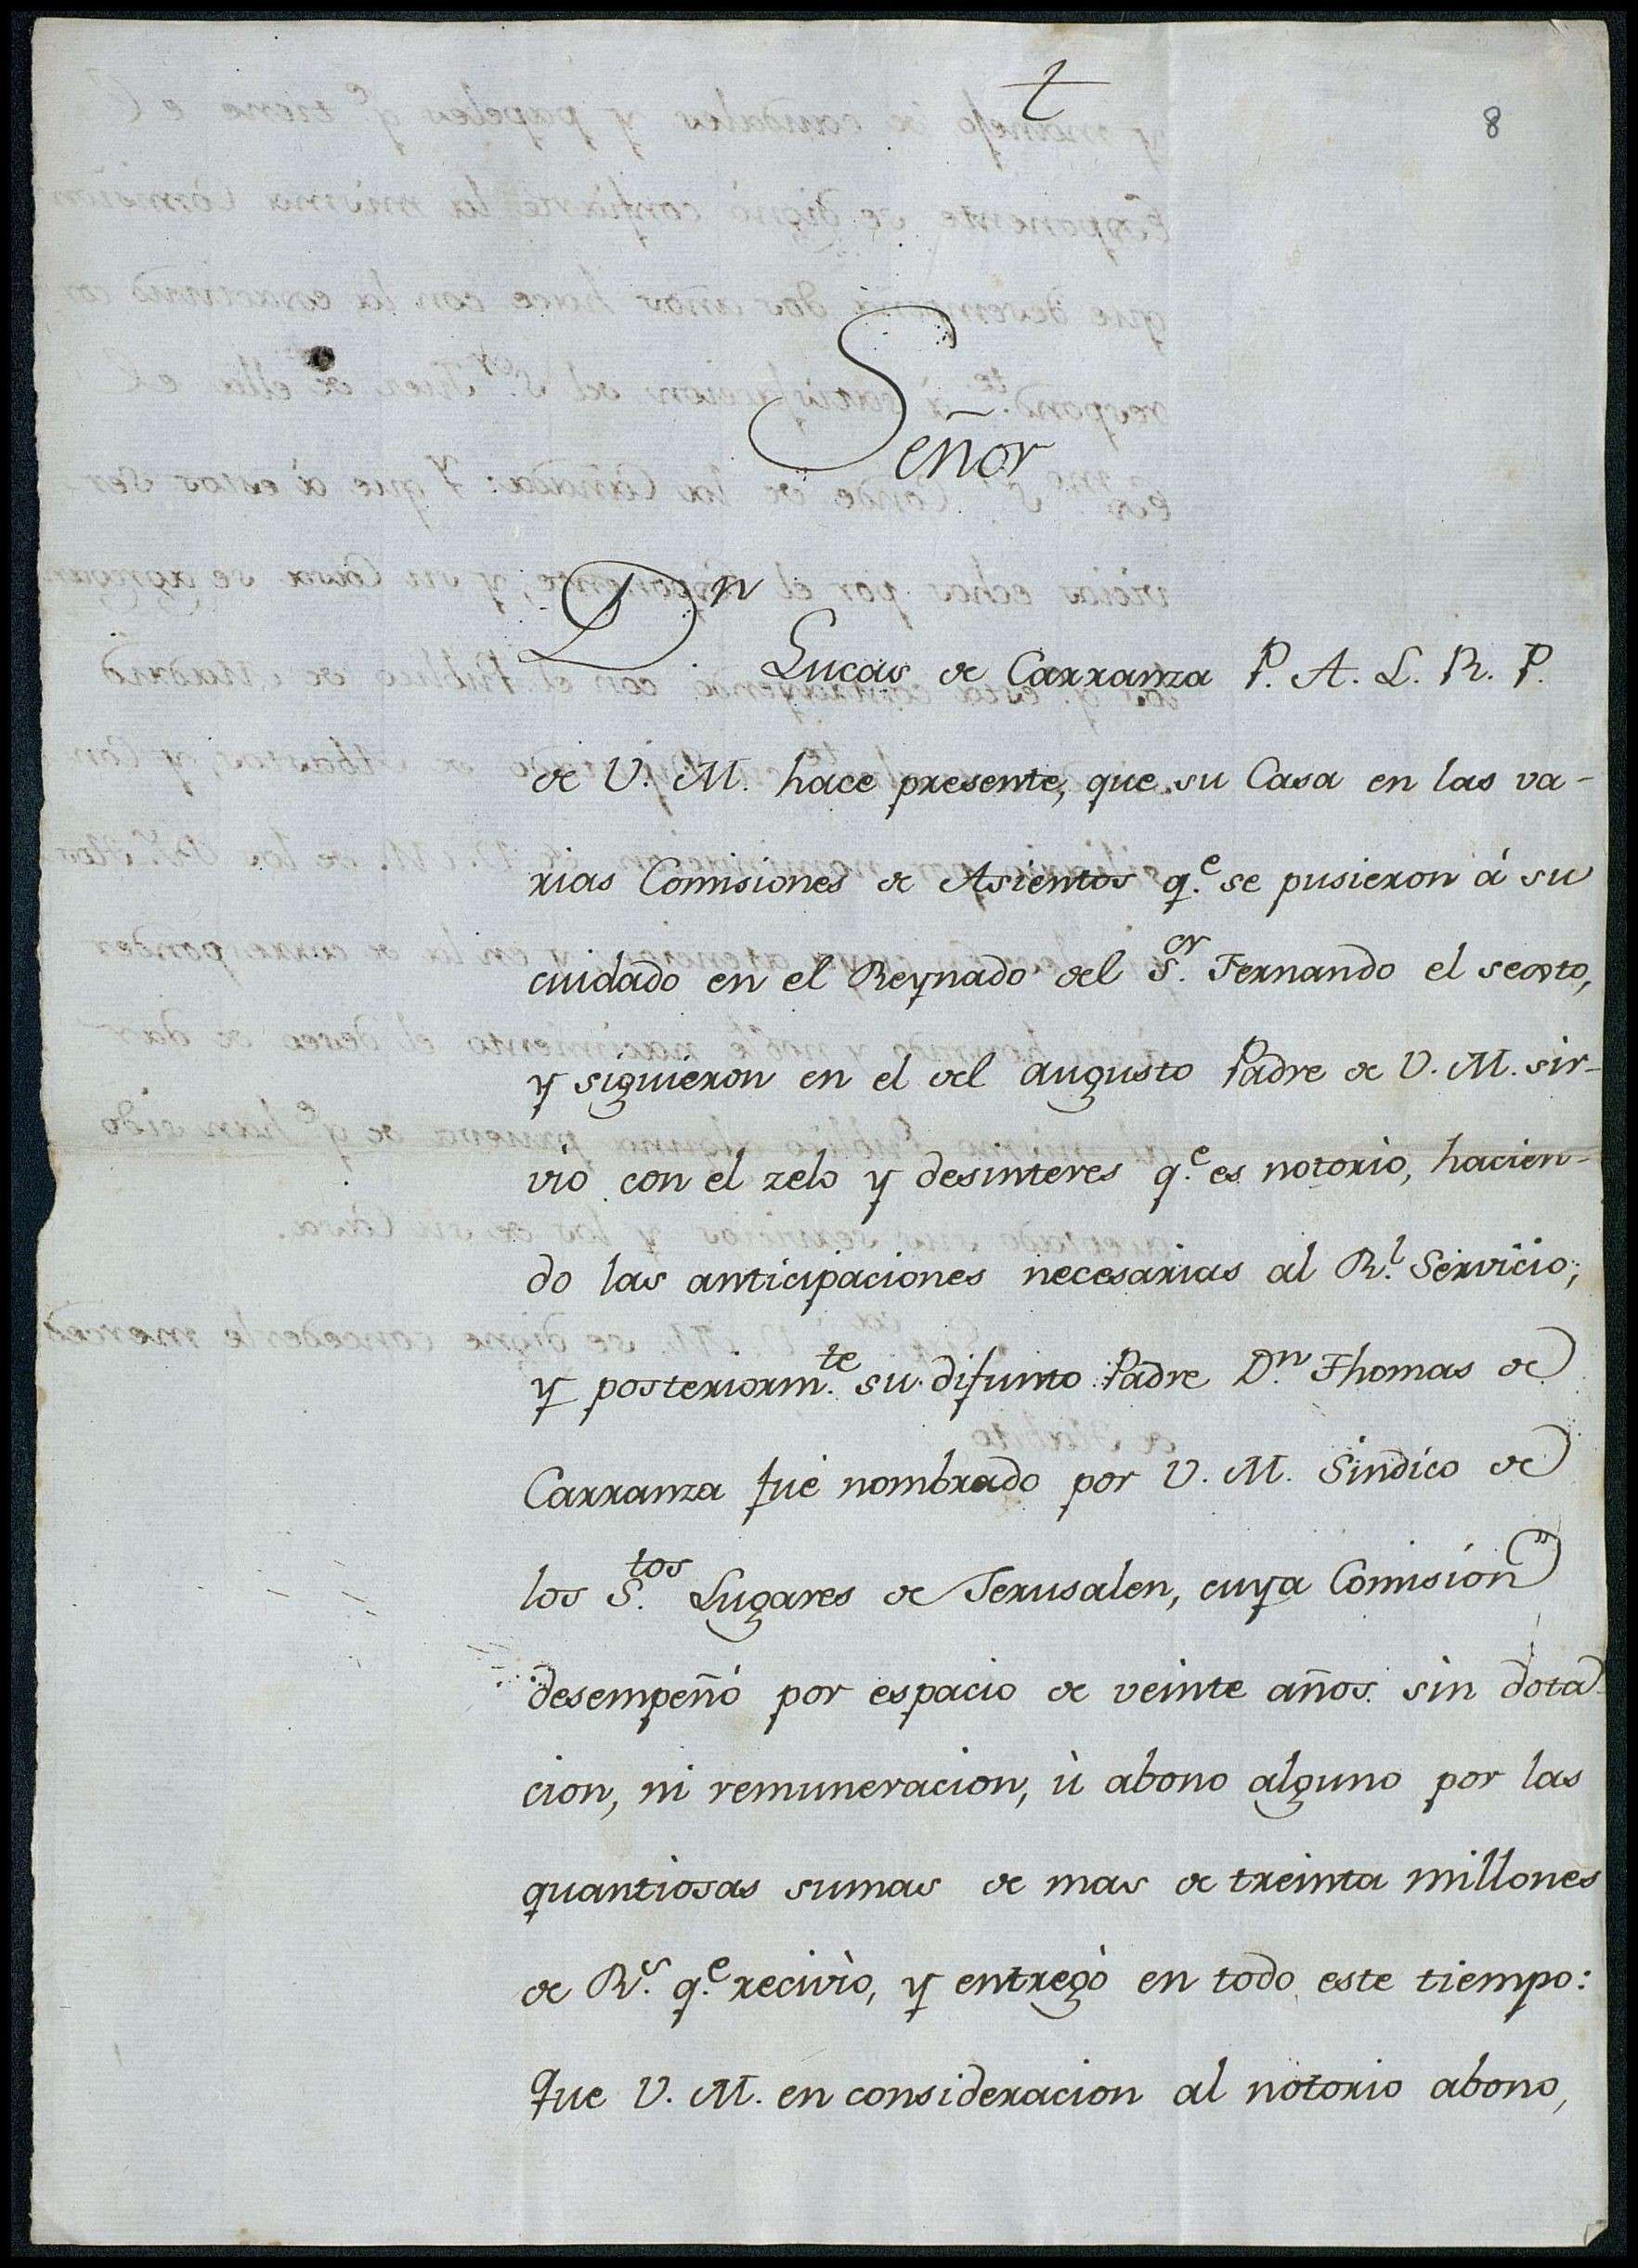 t
8
Señor
Dn Lucas de Carranza P. A. L. R. P.
de V. M. hace presente, que su Casa en las va-
rias Comisiones de Asientos q.e se pusieron à su
cuidado en el Reynado del S.or Fernando el sexto,
y siguieron en el del augusto Padre de V. M. sir-
vio con el zelo y desinteres q.e es notorio, hacien-
do las anticipaciones necesarias al R.l Servicio;
y posteriorm.te su difunto Padre D.n Thomas de
Carranza fue nombrado por V. M. Sindico de
los S.tos Lugares de Jerusalen, cuya Comision
desempeñó por espacio de veinte años sin dota
cion, ni remuneracion, ù abono alguno por las
quantiosas sumas de mas de treinta millones
de R.s q.e recivìo, y entregò en todo este tiempo:
que V. M. en consideracion al notorio abono,